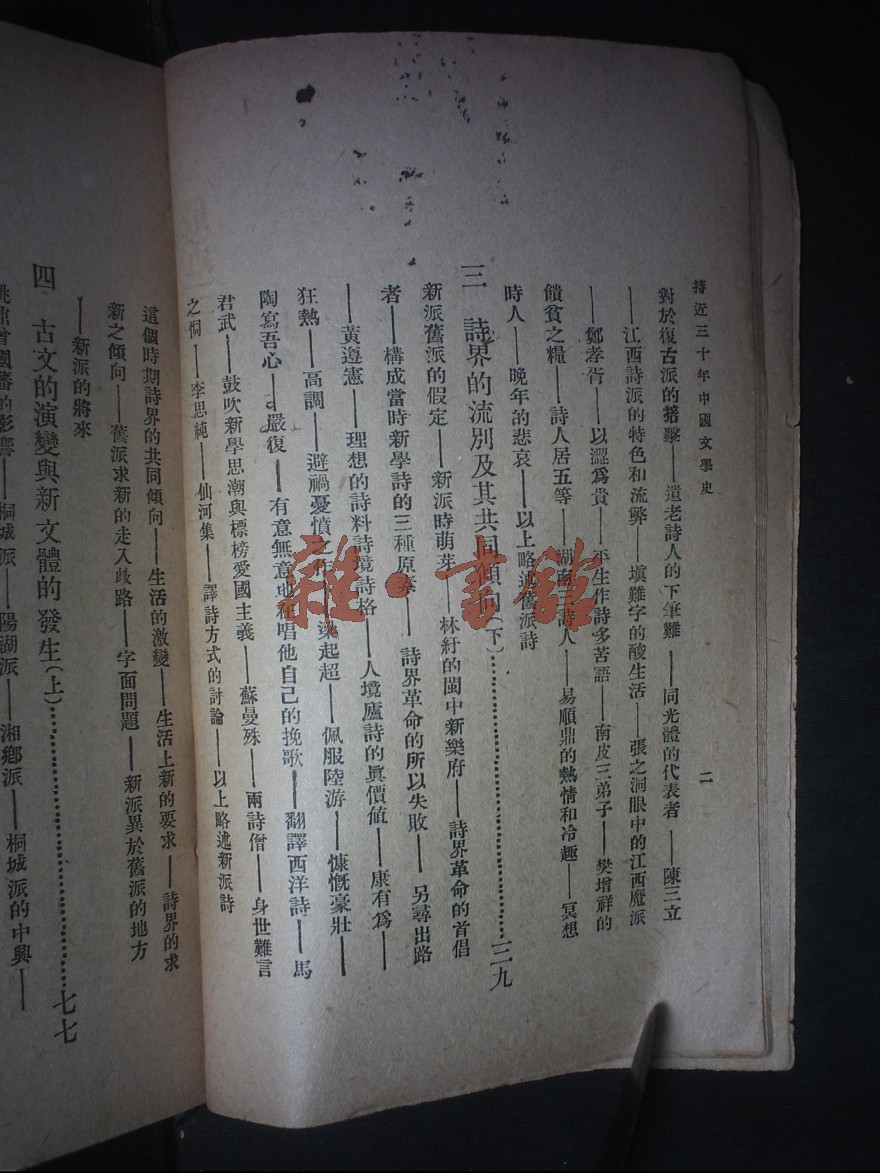 最近三十年中國文學史
二
對於復古派的掊擊——遺老詩人的下筆難——同光體的代表者——陳三立
——江西詩派的特色和流弊——填難字的酸生活——張之洞眼中的江西魔派
——鄭孝胥——以澀爲貴——平生作詩多苦語——南皮三弟子——樊增祥的
饋貧之糧——詩人居五等——湖南三詩人——易順鼎的熱情和冷趣——冥想
時人——晚年的悲哀——以上略述舊派詩
三 詩界的流別及其共同傾向(下)……三九
新派舊派的假定——新派時萌芽——林紓的閩中新樂府——詩界革命的首倡
者——構成當時新學詩的三種原素——詩界革命的所以失敗——另尋出路
——黃遵憲——理想的詩料詩境詩格——人境廬詩的眞價値——康有爲——
狂熱——高調——避禍憂憤之作——梁起超——佩服陸游——慷慨豪壯——
陶寫吾心——嚴復——有意無意也在唱他自己的挽歌——翻譯西洋詩——馬
君武——鼓吹新學思潮與標榜愛國主義——蘇曼殊——兩詩僧——身世難言
之恫——李思純——仙河集——譯詩方式的討論——以上略述新派詩
這個時期詩界的共同傾向——生活的激變——生活上新的要求——詩界的求
新之傾向——舊派求新的走入歧路——字面問題——新派異於舊派的地方
——新派的將來
四 古文的演變與新文體的發生(上)……七七
曾國藩的影響——桐城派——陽湖派——湘鄉派——桐城派的中興——
雜·書館